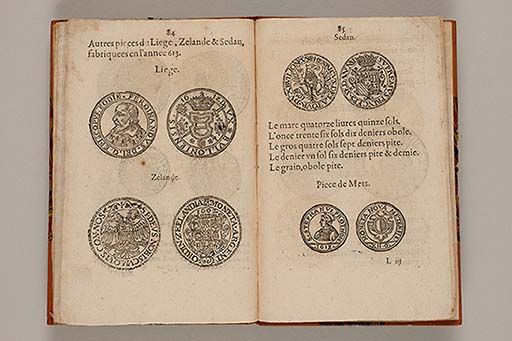 84
Autres pieces de Liege, Zelande & Sedan,
fabriquees en l'annee 613.
Liege.
Zelande.
85
Sedan.
Le marc quatorze liures quinze sols.
L'once trente six sols dix deniers obole.
Le gros quatre sols sept deniers pite.
Le denier vn sol six deniers pite & demie.
Le grain, obole pite.
Piece de Mets.
L iij